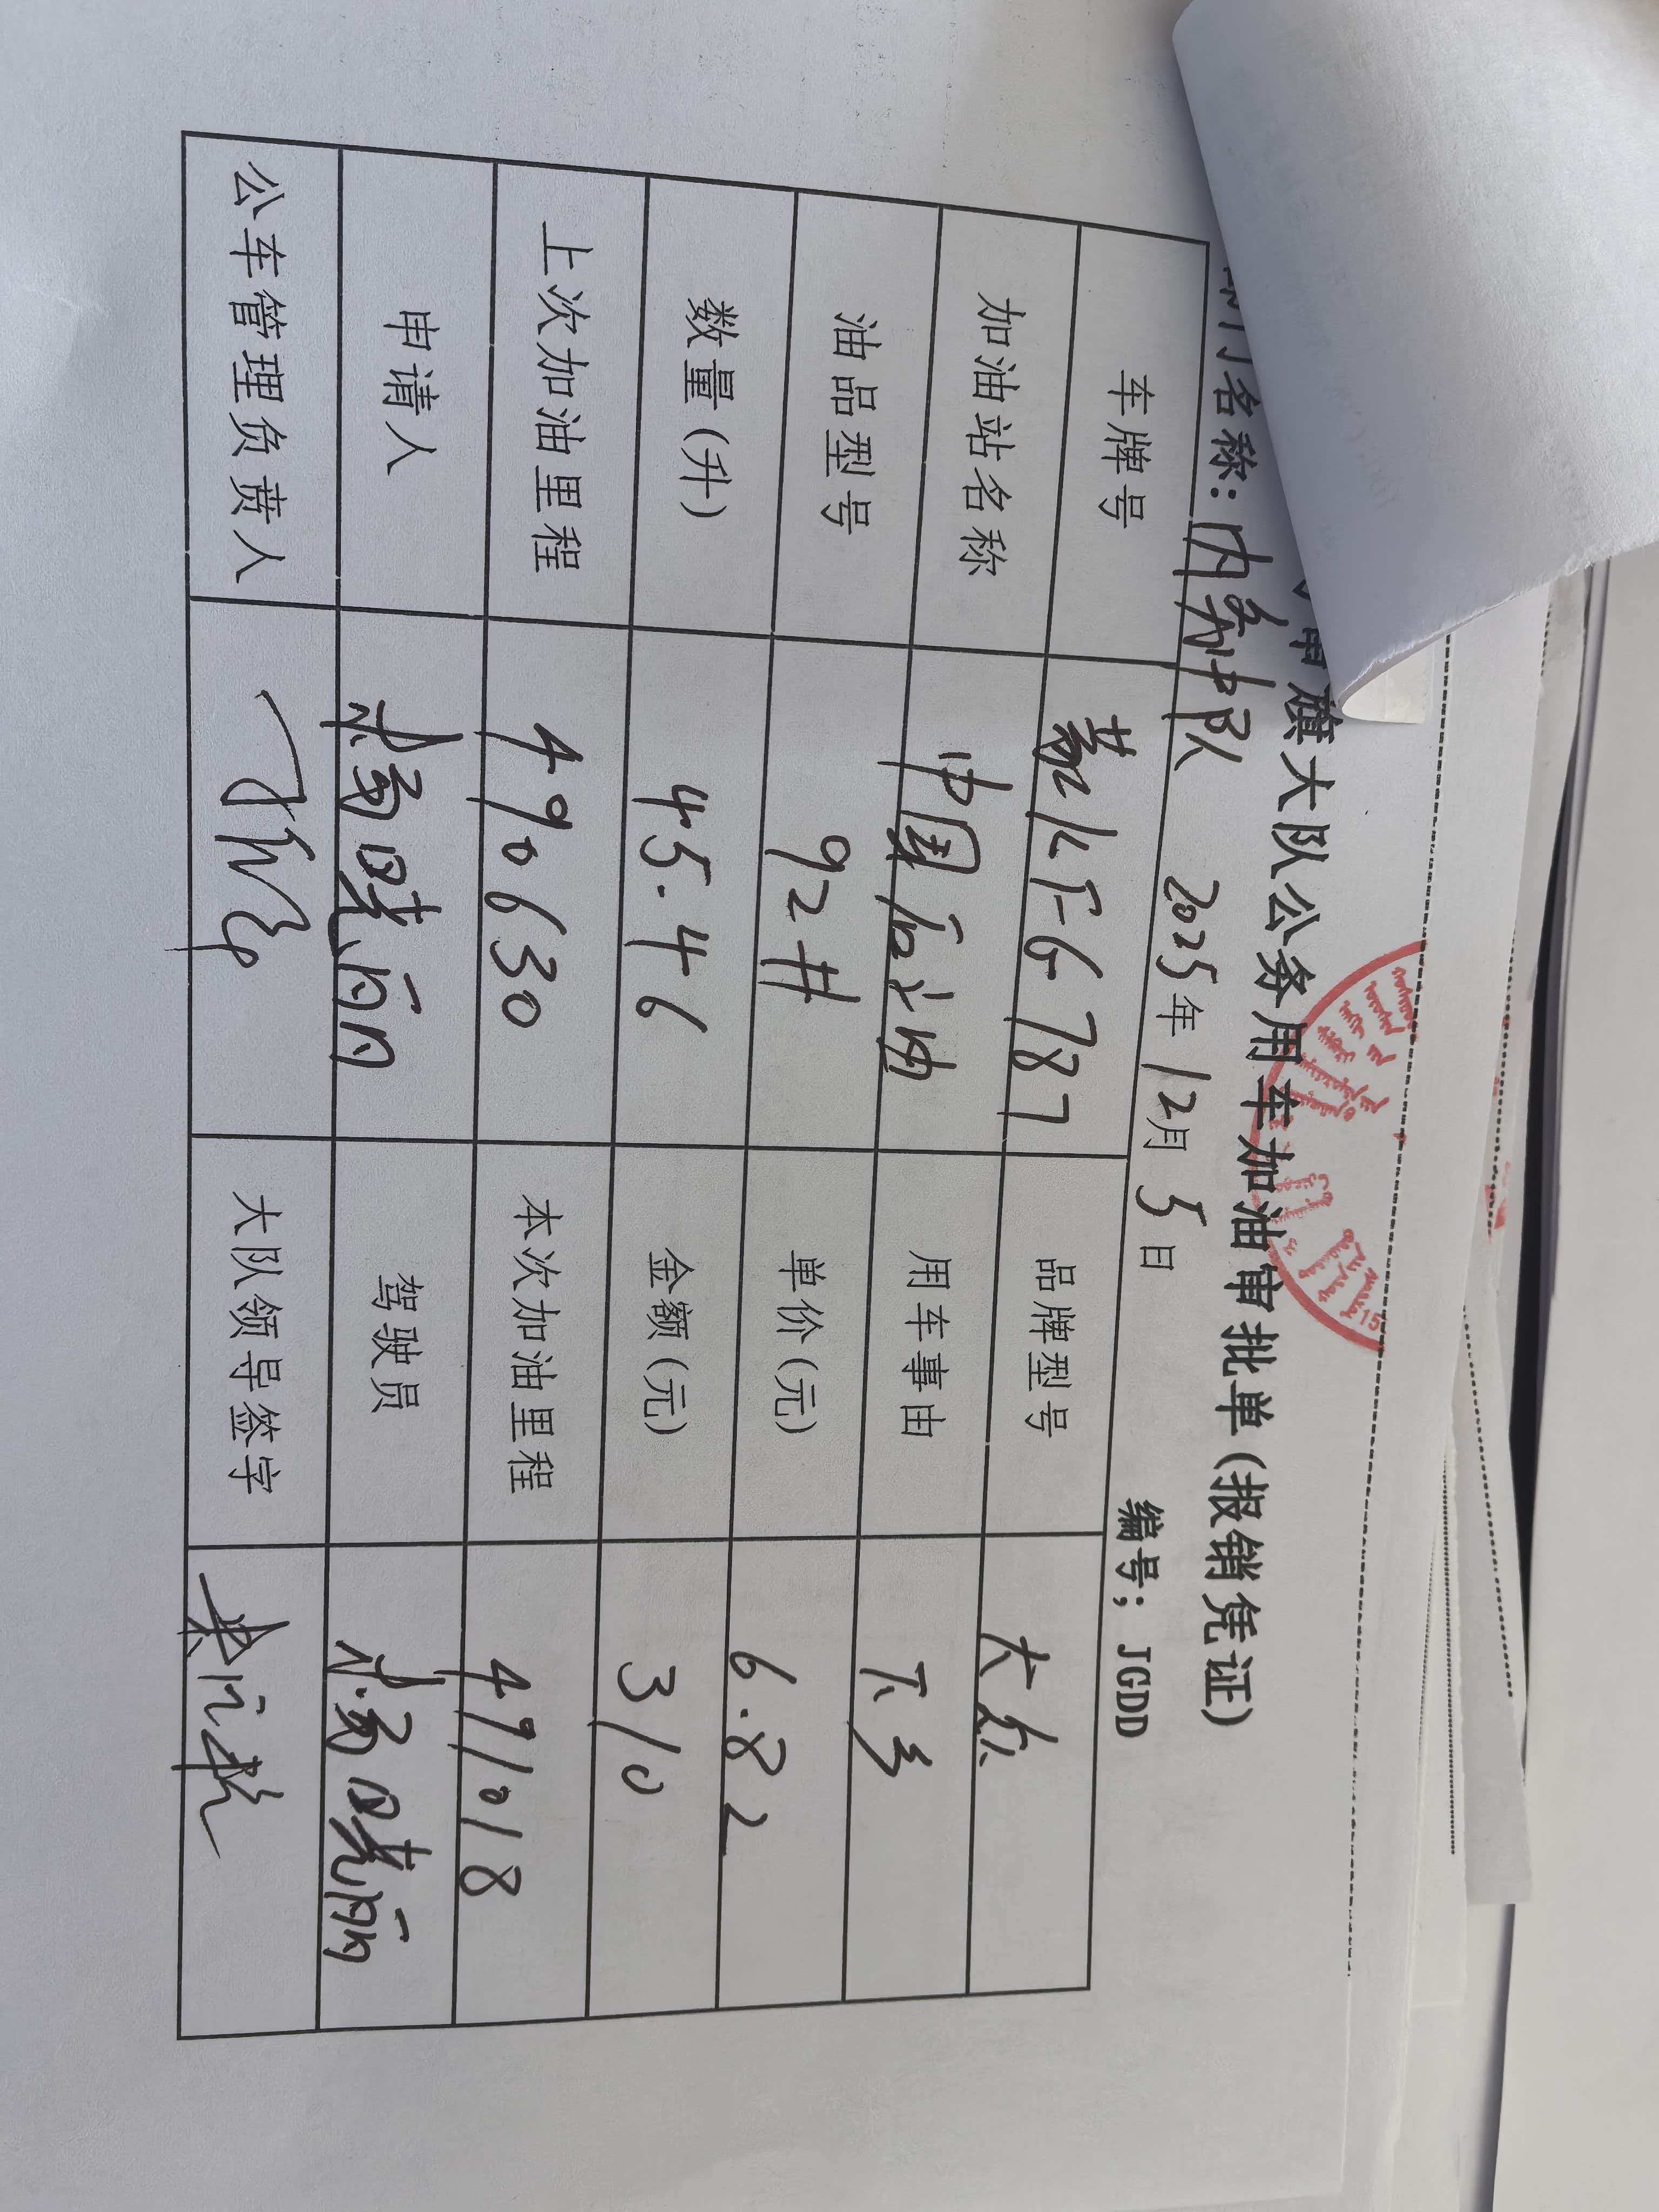 旗大队公务用车加油审批单(报销凭证)
门名称: 内务中队 2025年12月5日 编号; JGDD
车牌号 蒙K56787 品牌型号 大众
加油站名称 中国石油 用车事由 下乡
油品型号 92# 单价(元) 6.82
数量(升) 45.46 金额(元) 310
上次加油里程 490630 本次加油里程 491018
申请人 杨晓丽 驾驶员 杨晓丽
公车管理负责人 大队领导签字